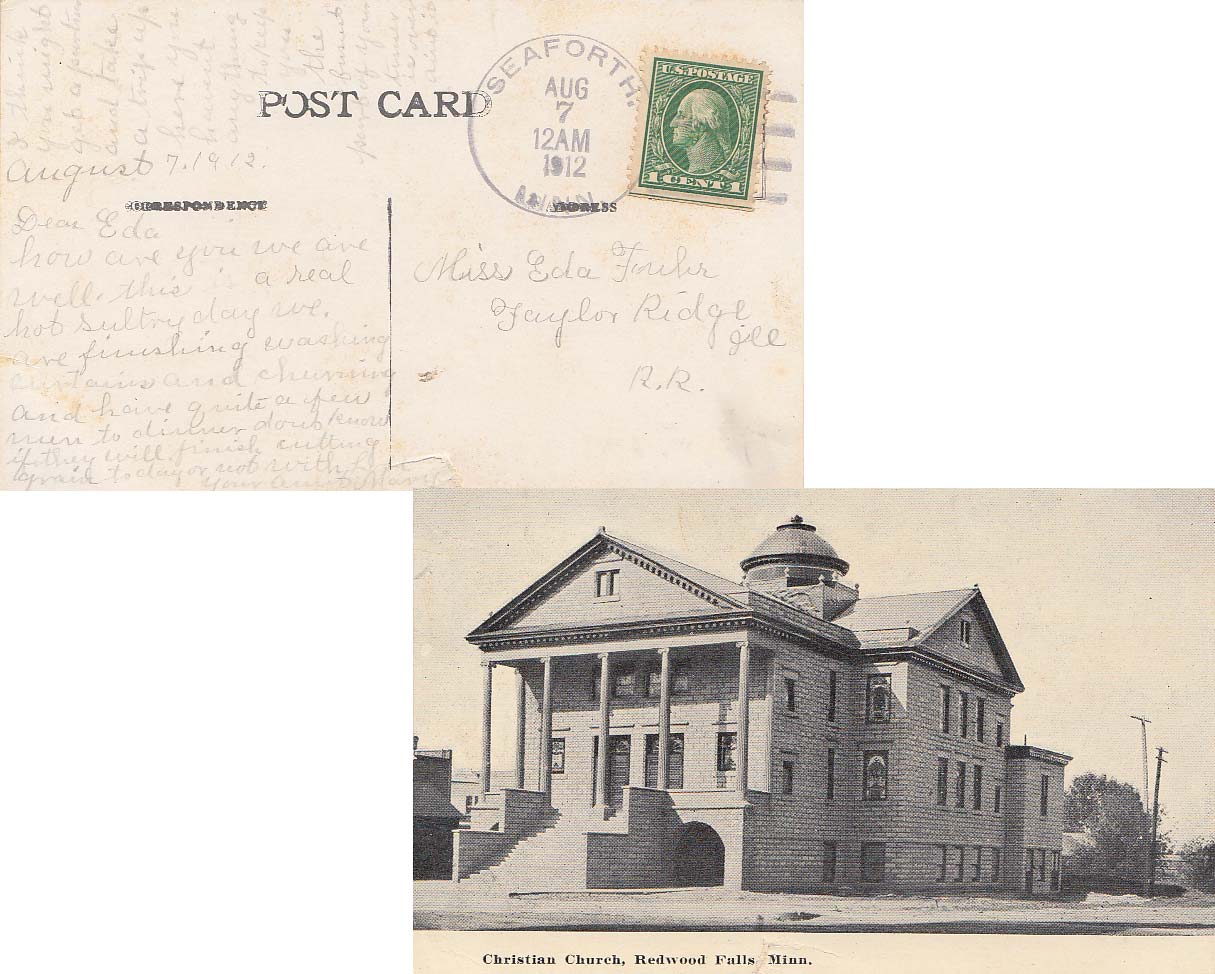 I think
you might
get a pencil
and take
a trip up
here you
haven't
anything
to keep
you
the
busiest
part of your
over
POST CARD
SEAFORTH,
AUG
7
12AM
1912
MINN.
U.S. POSTAGE
1 CENT 1
August 7, 1912.
CORRESPONDENCE
ADDRESS
Dear Eda
how are you we are
well. this is a real
hot sultry day we.
are finishing washing
curtains and churning
and have quite a few
men to dinner dont know
if they will finish cutting
grain to day or not with love
your aunt Mary
Miss Eda Fuhr
Taylor Ridge
Ill
R.R.
Christian Church, Redwood Falls Minn.